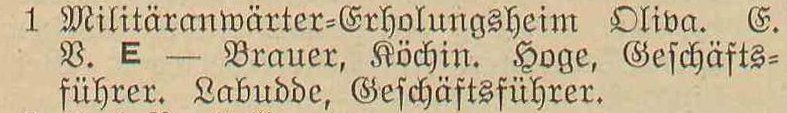 1 Militäranwärter-Erholungsheim Oliva. E.
V. E — Brauer, Köchin. Hoge, Geschäfts-
führer. Labudde, Geschäftsführer.